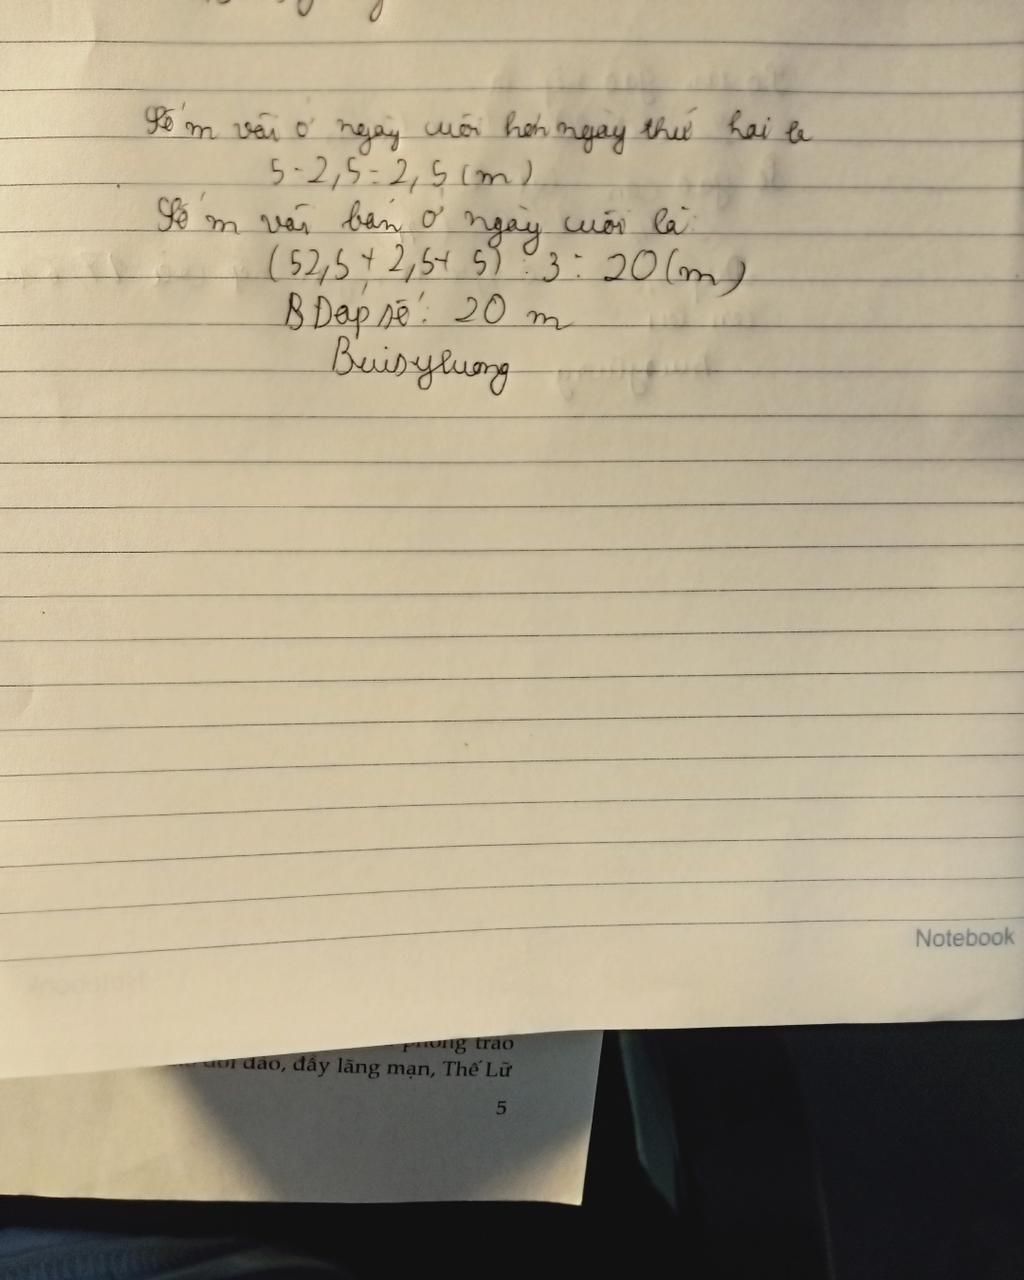 Số m vải ở ngày cuối hơn ngày thứ hai là
5 - 2,5 = 2,5 (m)
Số m vải bán ở ngày cuối là:
(52,5 + 2,5 + 5) : 3 = 20 (m)
B Đáp số: 20 m
Buisyluong
Notebook
phong trào
dồi dào, đầy lãng mạn, Thế Lữ
5